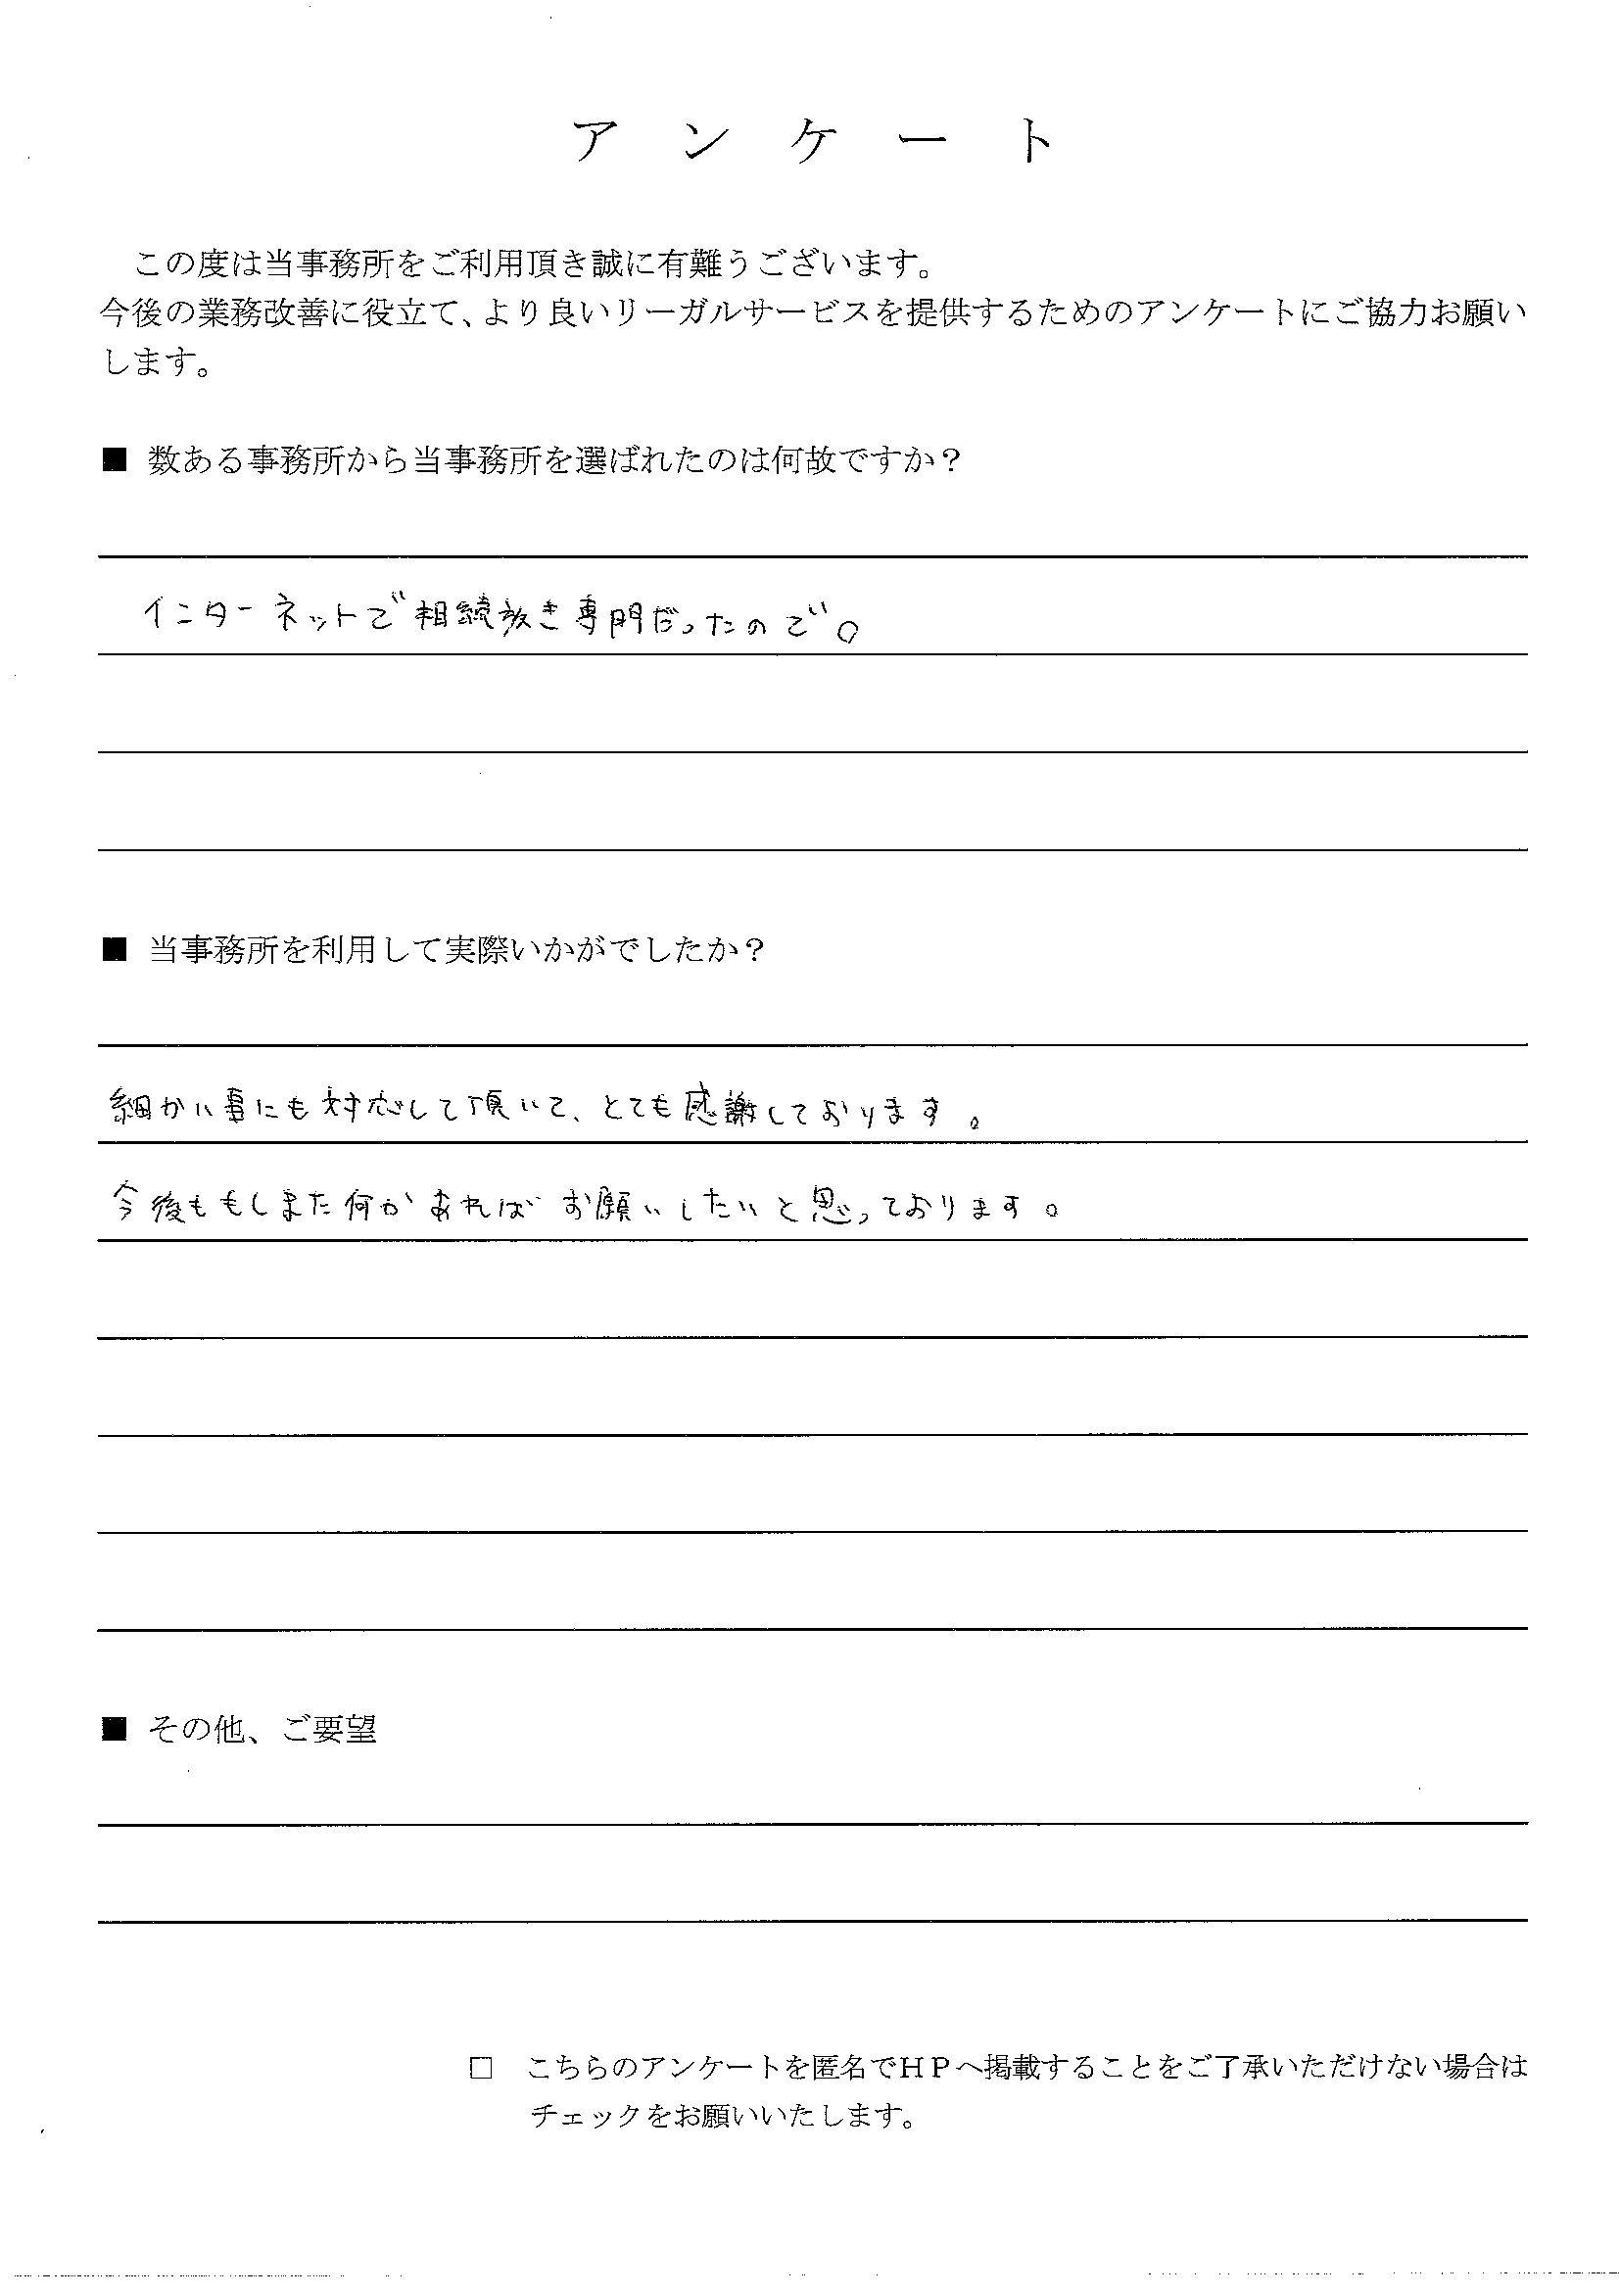 アンケート
この度は当事務所をご利用頂き誠に有難うございます。
今後の業務改善に役立て、より良いリーガルサービスを提供するためのアンケートにご協力お願い
します。
■ 数ある事務所から当事務所を選ばれたのは何故ですか？
インターネットで相続放き専門だったので。
■ 当事務所を利用して実際いかがでしたか？
細かい事にも対応して頂いて、とても感謝しております。
今後ももしまた何かあればお願いしたいと思っております。
■ その他、ご要望
□ こちらのアンケートを匿名でＨＰへ掲載することをご了承いただけない場合は
チェックをお願いいたします。